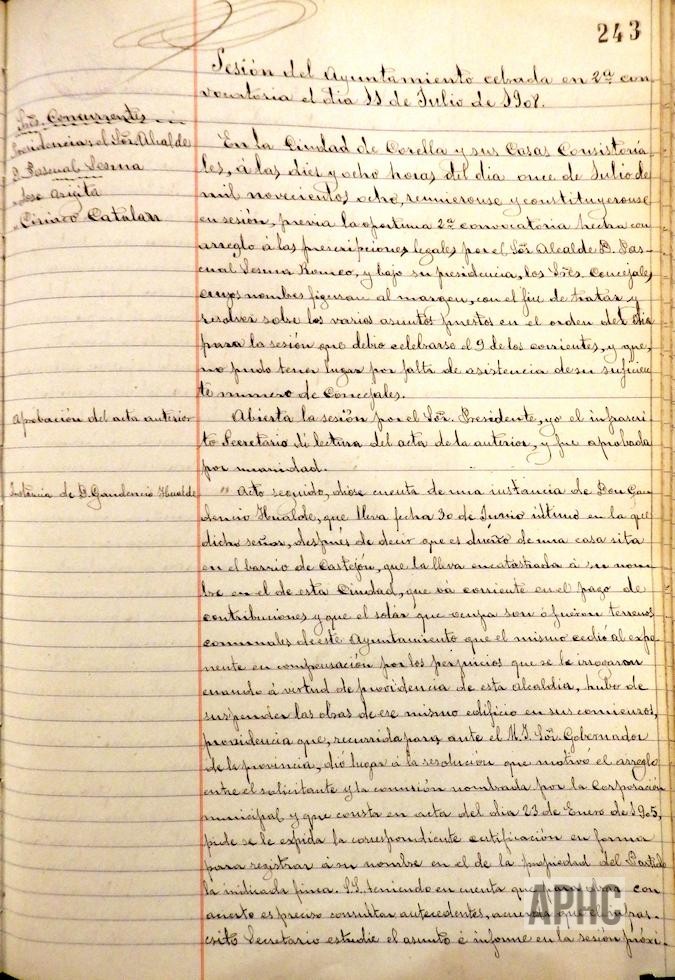 243
Sesión del Ayuntamiento celbrada en 2ª con-
vocatoria el día 11 de Julio de 1908.
Sres. Concurrentes
Presidencia: el Sor. Alcalde
D. Pascual Sesma
" José Arigita
" Ciriaco Catalan
En la Ciudad de Corella y sus Casas Consistoria-
les, á las diez y ocho horas del dia once de Julio de
mil novecientos ocho, reunieronse y constituyeronse
en sesión, previa la oportuna 2ª convocatoria hecha con
arreglo á las prescripciones legales por el Sor. Alcalde D. Pas-
cual Sesma Romeo, y bajo su presidencia, los Sres. Concejales
cuyos nombres figuran al margen, con el fin de tratar y
resolver sobre los varios asuntos puestos en el orden del dia
para la sesión que debio celebrarse el 9 de los corrientes, y que,
no pudo tener lugar por falta de asistencia de su suficien-
te numero de Concejales.
Aprobación del acta anterior
Abierta la sesión por el Sor. Presidente, yo el infrascri-
to Secretario dí lectura del acta de la anterior, y fue aprobada
por unanidad.
Instancia de D. Gaudencio Hualde
" Acto seguido, diose cuenta de una instancia de Don Gau-
dencio Hualde, que lleva fecha 30 de Junio último en la que
dicho señor, después de decir que es dueño de una casa sita
en el barrio de Castejón, que la lleva encatastrada á su nom-
bre en el de esta Ciudad, que vá corriente en el pago de
contribuciones y que el solar que ocupa son ó fueron terrenos
comunales de este Ayuntamiento que el mismo cedió al expo-
nente en compensación por los perjuicios que se le irrogaron
cuando á virtud de providencia de esta Alcaldia, hubo de
suspender las obras de ese mismo edificio en sus comienzos,
providencia que, recurrida para ante el M. I. Sor. Gobernador
de la provincia, dió lugar á la resolución que motivó el arreglo
entre el solicitante y la comisión nombrada por la Corporación
municipal y que consta en acta del dia 23 de Enero de 1905,
pide se le expida la correspondiente certificación en forma
para registrar á su nombre en el de la propiedad del Partido
la indicada finca. S.S. teniendo en cuenta que para obrar con
acierto es preciso consultar antecedentes, acuerda que el infras-
crito Secretario estudie el asunto é informe en la sesión próxi-
APHC